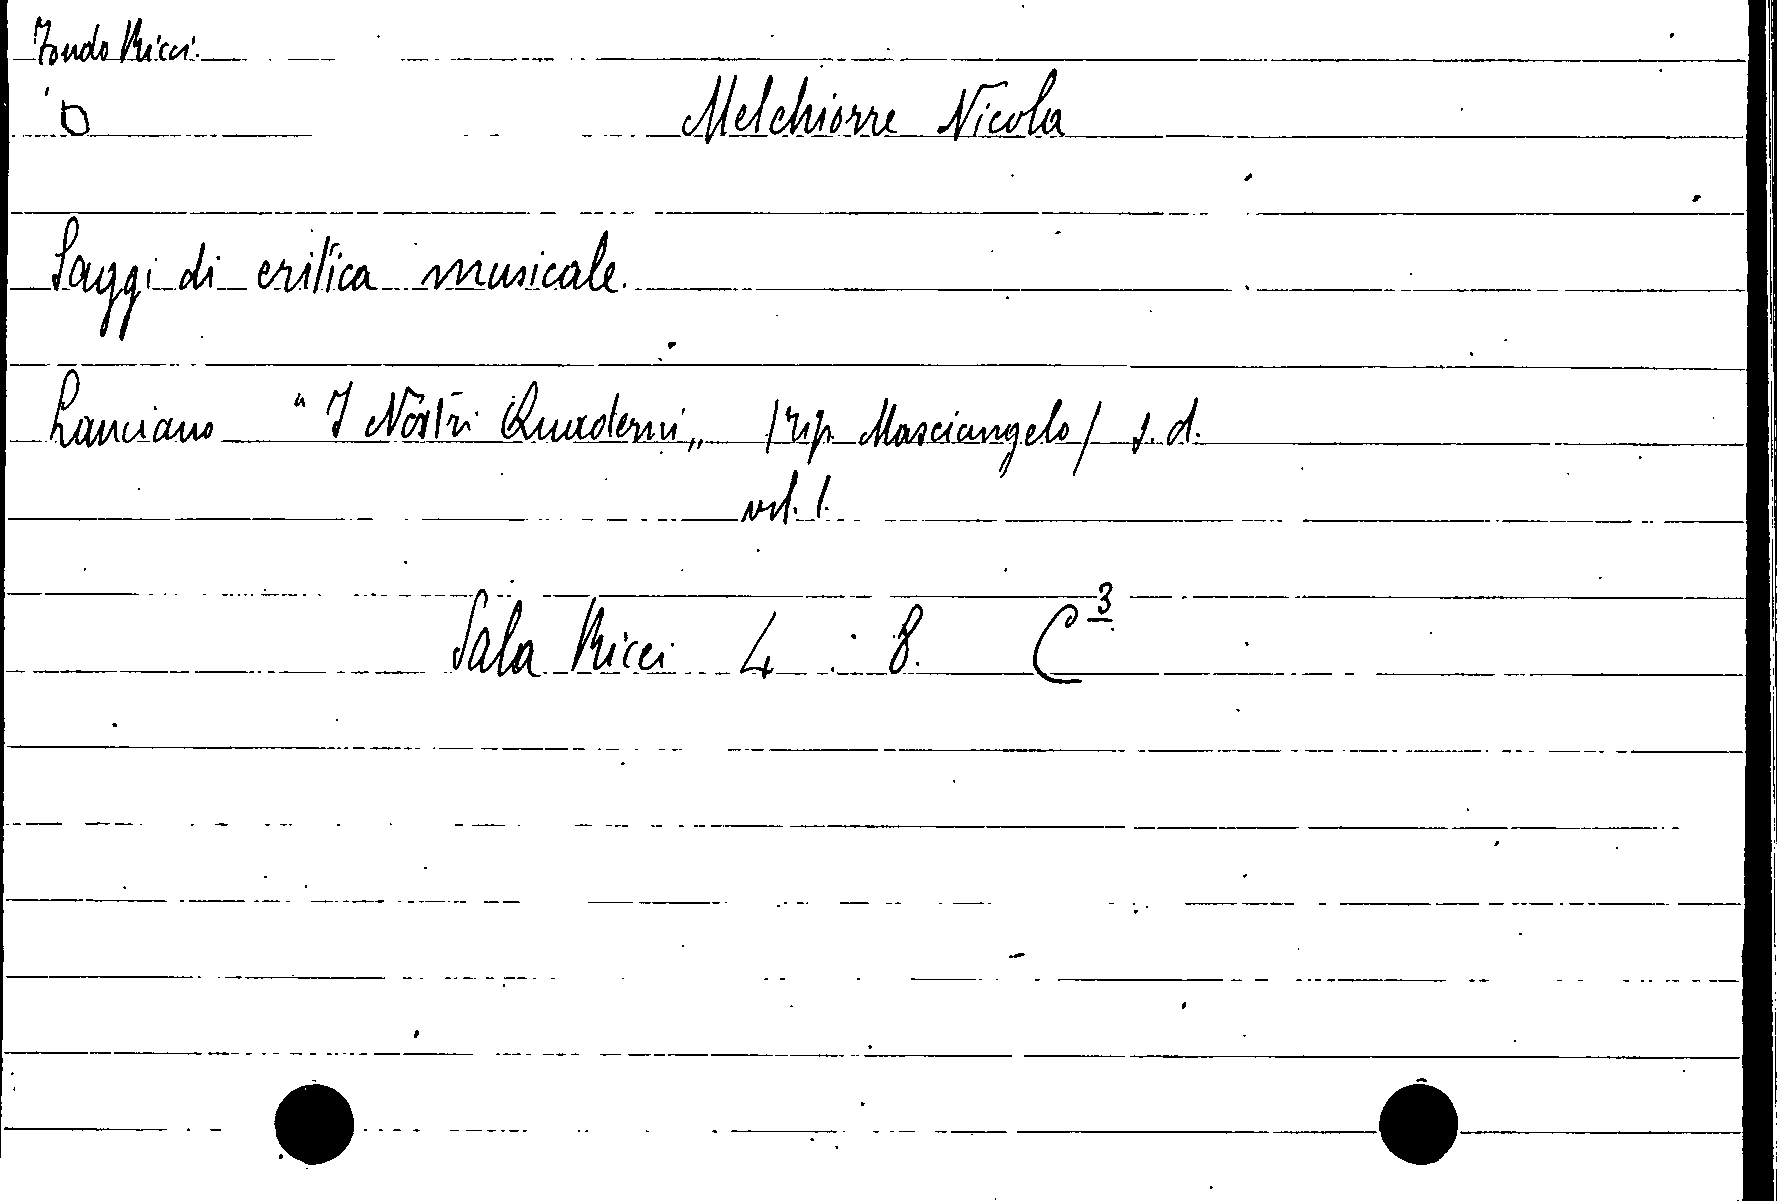 Fondo Ricci.
D
Melchiorre Nicola
Saggi di critica musicale.
Lanciano "I Nostri Quaderni" /tip. Masciangelo/ s.d.
vol. 1.
Sala Ricci 4 . 8. C 3